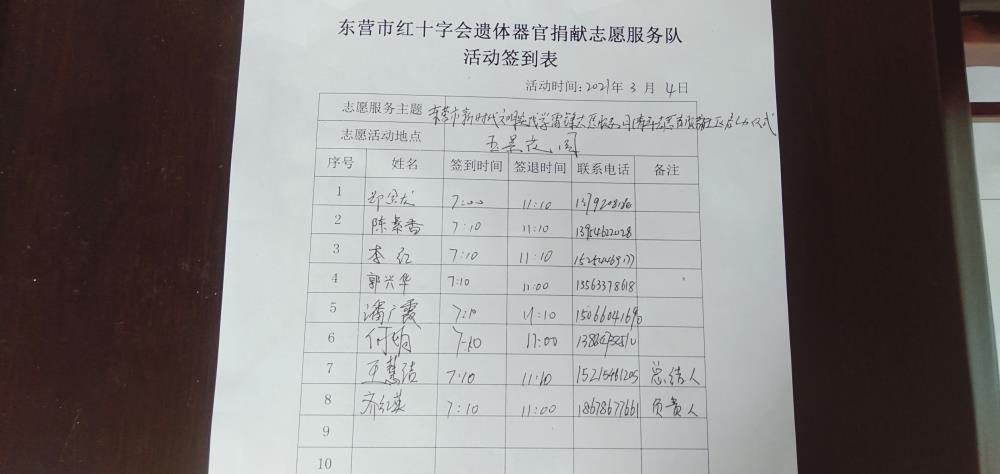 东营市红十字会遗体器官捐献志愿服务队
活动签到表
活动时间:2021年 3 月 4日
志愿服务主题 东营市新时代文明实践学雷锋志愿服务
志愿活动地点
序号 姓名 签到时间 签退时间 联系电话 备注
1 7:00 11:10
2 陈素香 7:10 11:10 13954622028
3 李红 7:10 11:10
4 郭兴华 7:10 11:00 13563378618
5 潘广霞 7:10 11:10 15066041690
6 付娟 7:10 11:00
7 王慧洁 7:10 11:10 15215461205 总结人
8 齐红英 7:10 11:00 18678677661 负责人
9
10